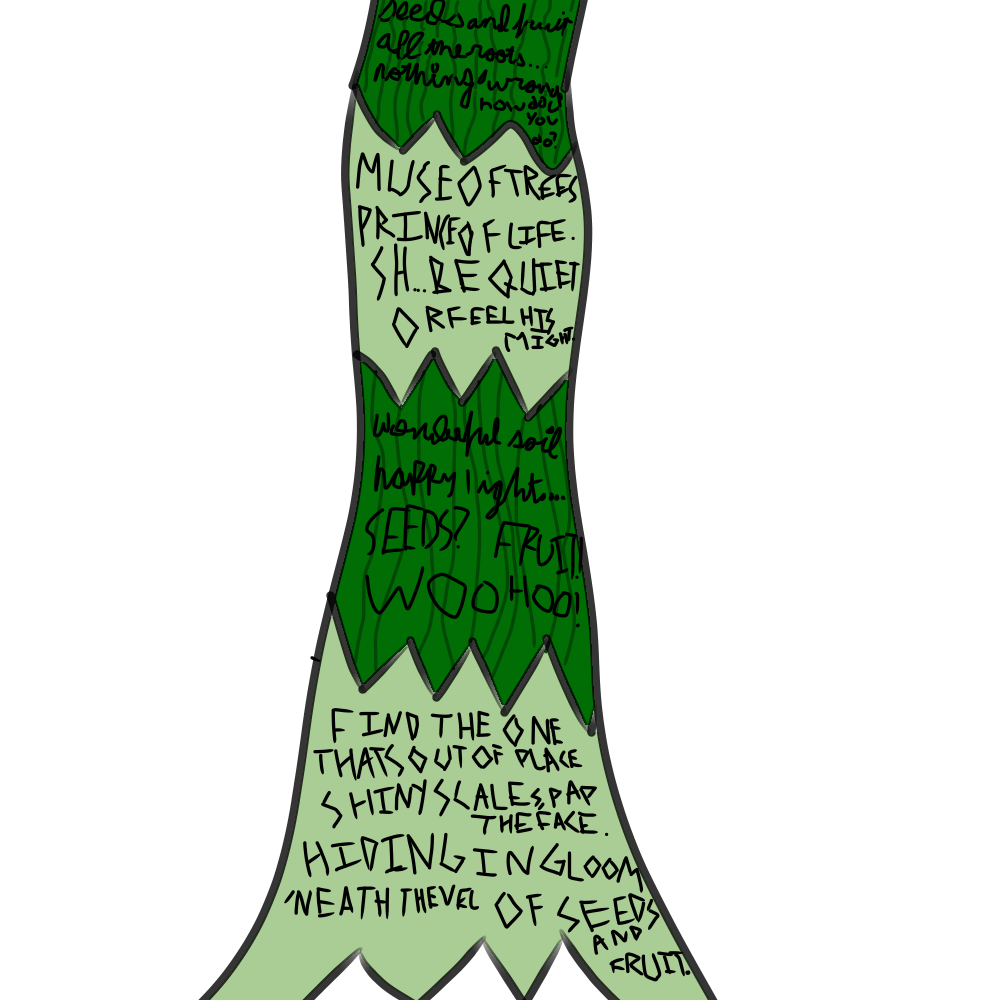 seeds and fruit
all the roots...
nothing's wrong
how do
you
do?
MUSE OF TREES
PRINCE OF LIFE.
SH... BE QUIET
OR FEEL HIS
MIGHT.
wonderful soil
happy light....
SEEDS? FRUIT!
WOOHOO!
FIND THE ONE
THATS OUT OF PLACE
SHINY SCALES, PAP
THE FACE.
HIDING IN GLOOM
'NEATH THE VEL OF SEEDS
AND
FRUIT.